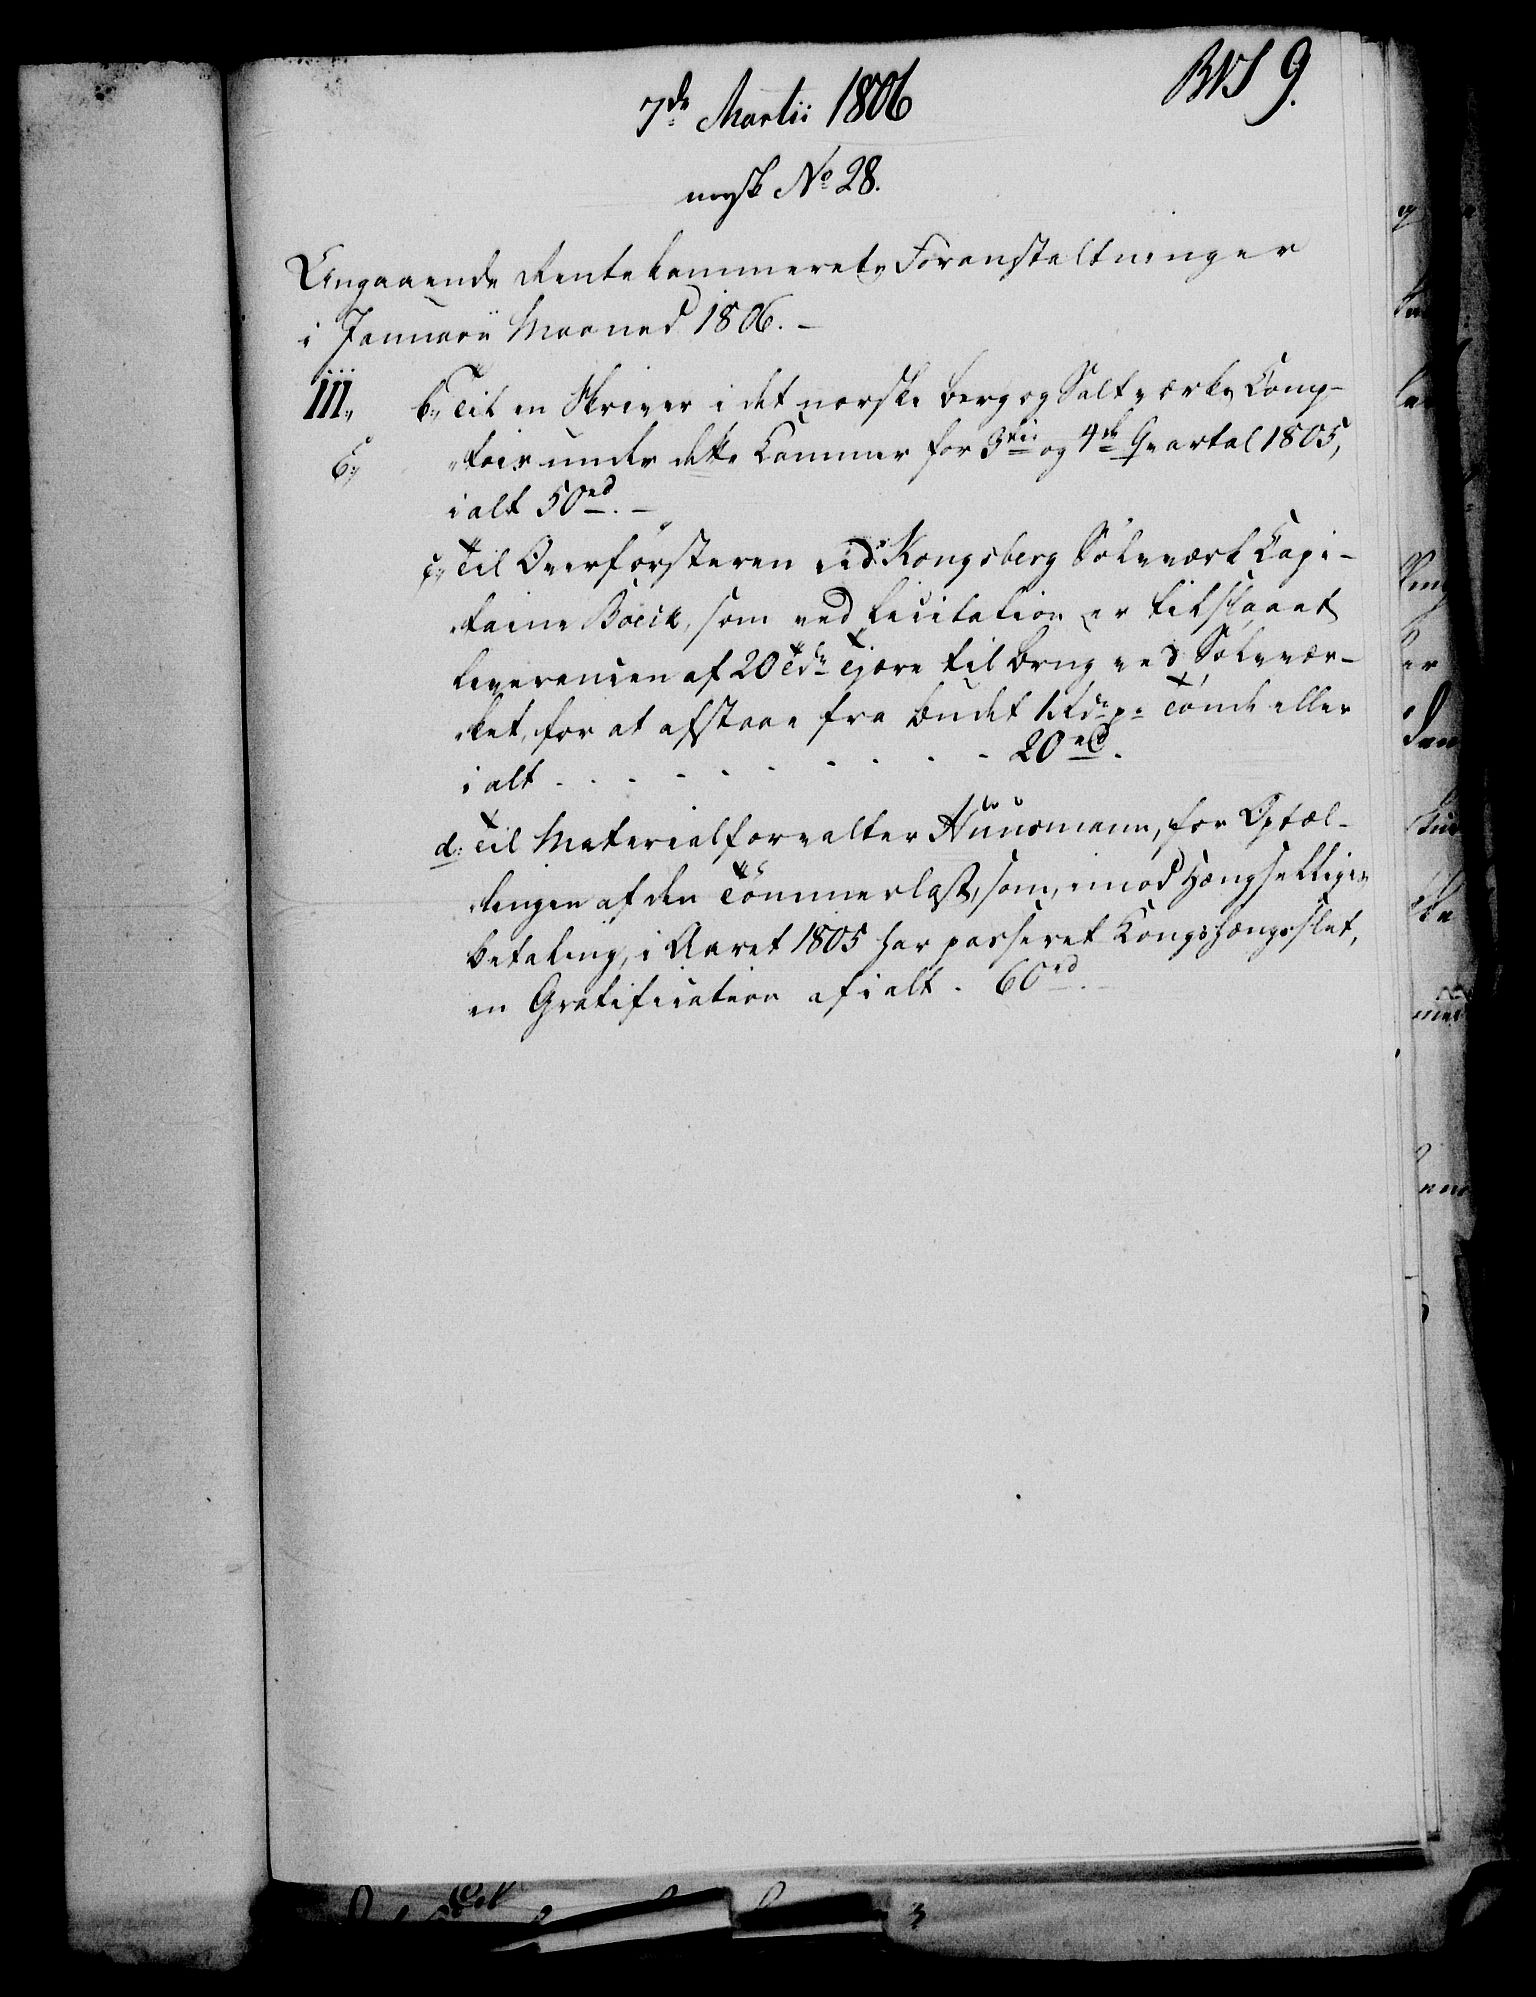 7de Martii 1806
BVS 9.
norsk No 28.
Angaaende Rentekammerets Foranstaltninger
i Januarii Maaned 1806. -
III.
6., b., Til en Skriver i det norske Berg og Saltværks Comp-
toir under dette Kammer for 3die og 4de Qvartal 1805,
ialt 50 rd. -
c., Til Overforsteren ved Kongsberg Sølvværk Capi-
taine Boeck, som ved Licitation er tilslaaet
Leverencen af 20 Tdr Tjære til Brug ved Sølvvær-
ket, for at afstaae fra Budet 1 Rdr pr Tönde eller
ialt - - - - - - - - - - 20 rd.
d: Til Materialforvalter Huusmann, for Optæl-
lingen af den Tömmerlast, som, imod Hængselliger
Betaling, i Aaret 1805 har passeret Kongshængslet,
en Gratification af ialt . 60 rd. -